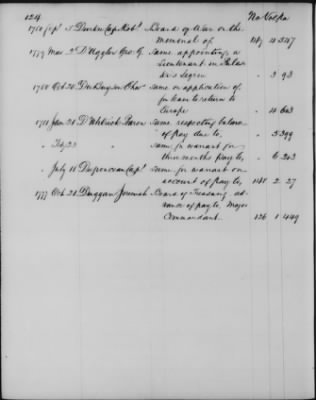 124 No Vol Pa
1780 Sept 5 Board of War on the
memorial of 147 4 347
1779 Mar 2 D'Uggloo Geo. G. Same appointing a
Lieutenant in Pulas
ki's Legion " 3 93
1780 Oct 20 Same on application of
for leave to return to
Europe " 4 663
Jan 20 Baron Same respecting balance
of pay due to " 5 399
" Feb 23 " Same for warrant for
three months pay to " 6 243
" July 11 Duponceau Cap. Same for warrant on
account of pay to 148 2 27
1777 Oct 20 Duggan Jeremiah Board of Treasury ad
vance of pay to Major
Commandant 136 1 449